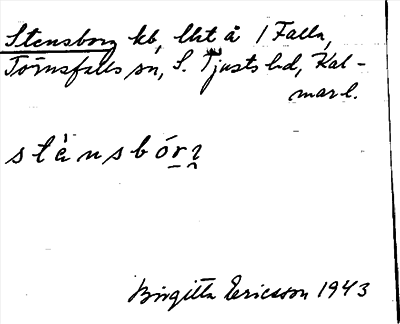 Stensborg kb, lht å 1 Falla,
Törnsfalls sn, S. Tjusts hd, Kal-
mar l.
stènsbór
Birgitta Ericsson 1943